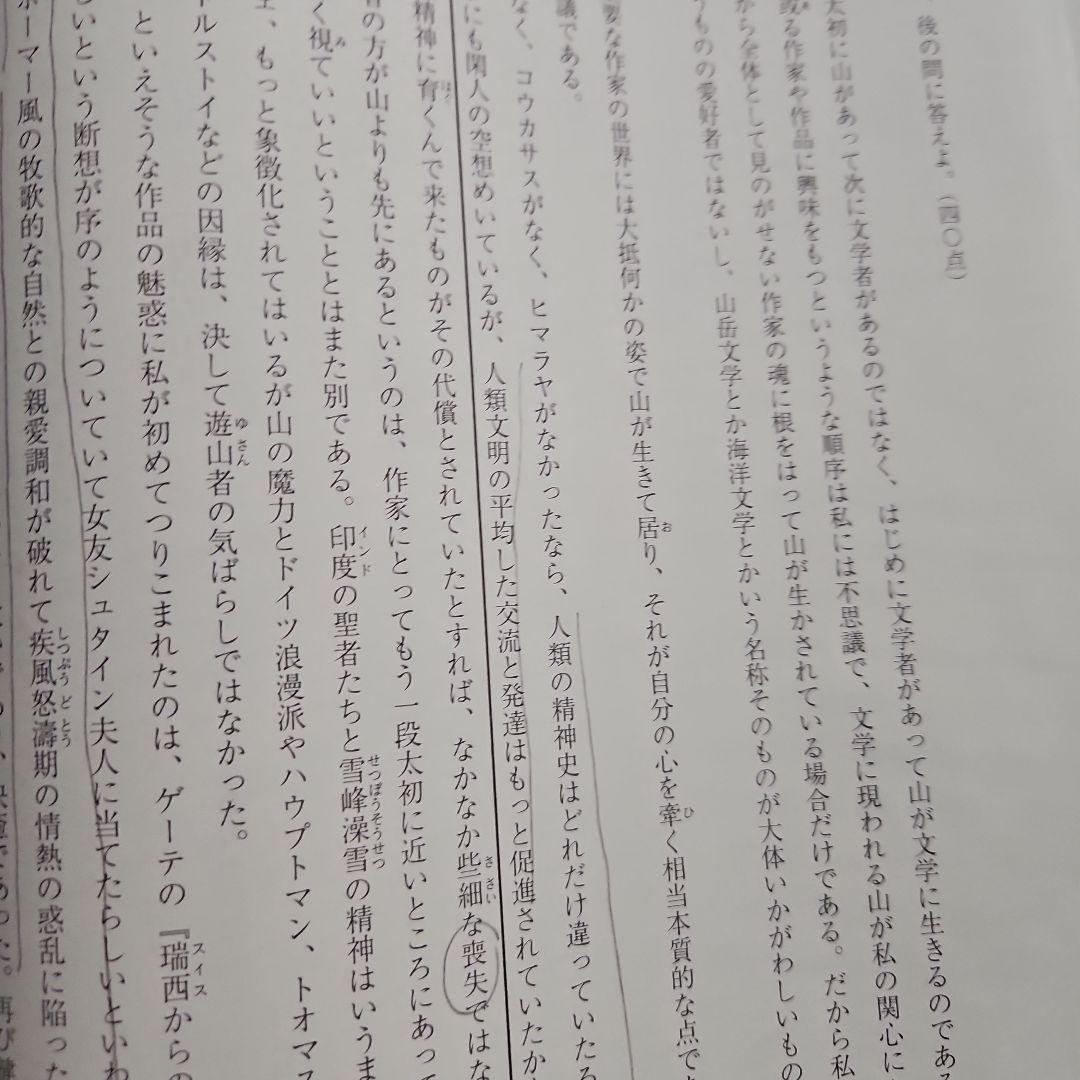 後の問に答えよ。（四〇点）
太初に山があって次に文学者があるのではなく、はじめに文学者があって山が文学に生きるのである
或る作家や作品に興味をもつというような順序は私には不思議で、文学に現われる山が私の関心に
から全体として見のがせない作家の魂に根をはって山が生かされている場合だけである。だから私
うものの愛好者ではないし、山岳文学とか海洋文学とかいう名称そのものが大体いかがわしいもの
要な作家の世界には大抵何かの姿で山が生きて居り、それが自分の心を牽く相当本質的な点で
議である。
なく、コウカサスがなく、ヒマラヤがなかったなら、人類の精神史はどれだけ違っていたろ
にも閑人の空想めいているが、人類文明の平均した交流と発達はもっと促進されていたか
精神に育くんで来たものがその代償とされていたとすれば、なかなか些細な喪失ではな
者の方が山よりも先にあるというのは、作家にとってもう一段太初に近いところにあって
く視ていいということとはまた別である。印度の聖者たちと雪峰澡雪の精神はいうま
、もっと象徴化されてはいるが山の魔力とドイツ浪漫派やハウプトマン、トオマス
トルストイなどの因縁は、決して遊山者の気ばらしではなかった。
といえそうな作品の魅惑に私が初めてつりこまれたのは、ゲーテの『瑞西からの
しいという断想が序のようについていて女友シュタイン夫人に当てたらしいといわ
ホーマー風の牧歌的な自然との親愛調和が破れて疾風怒濤期の情熱の惑乱に陥った